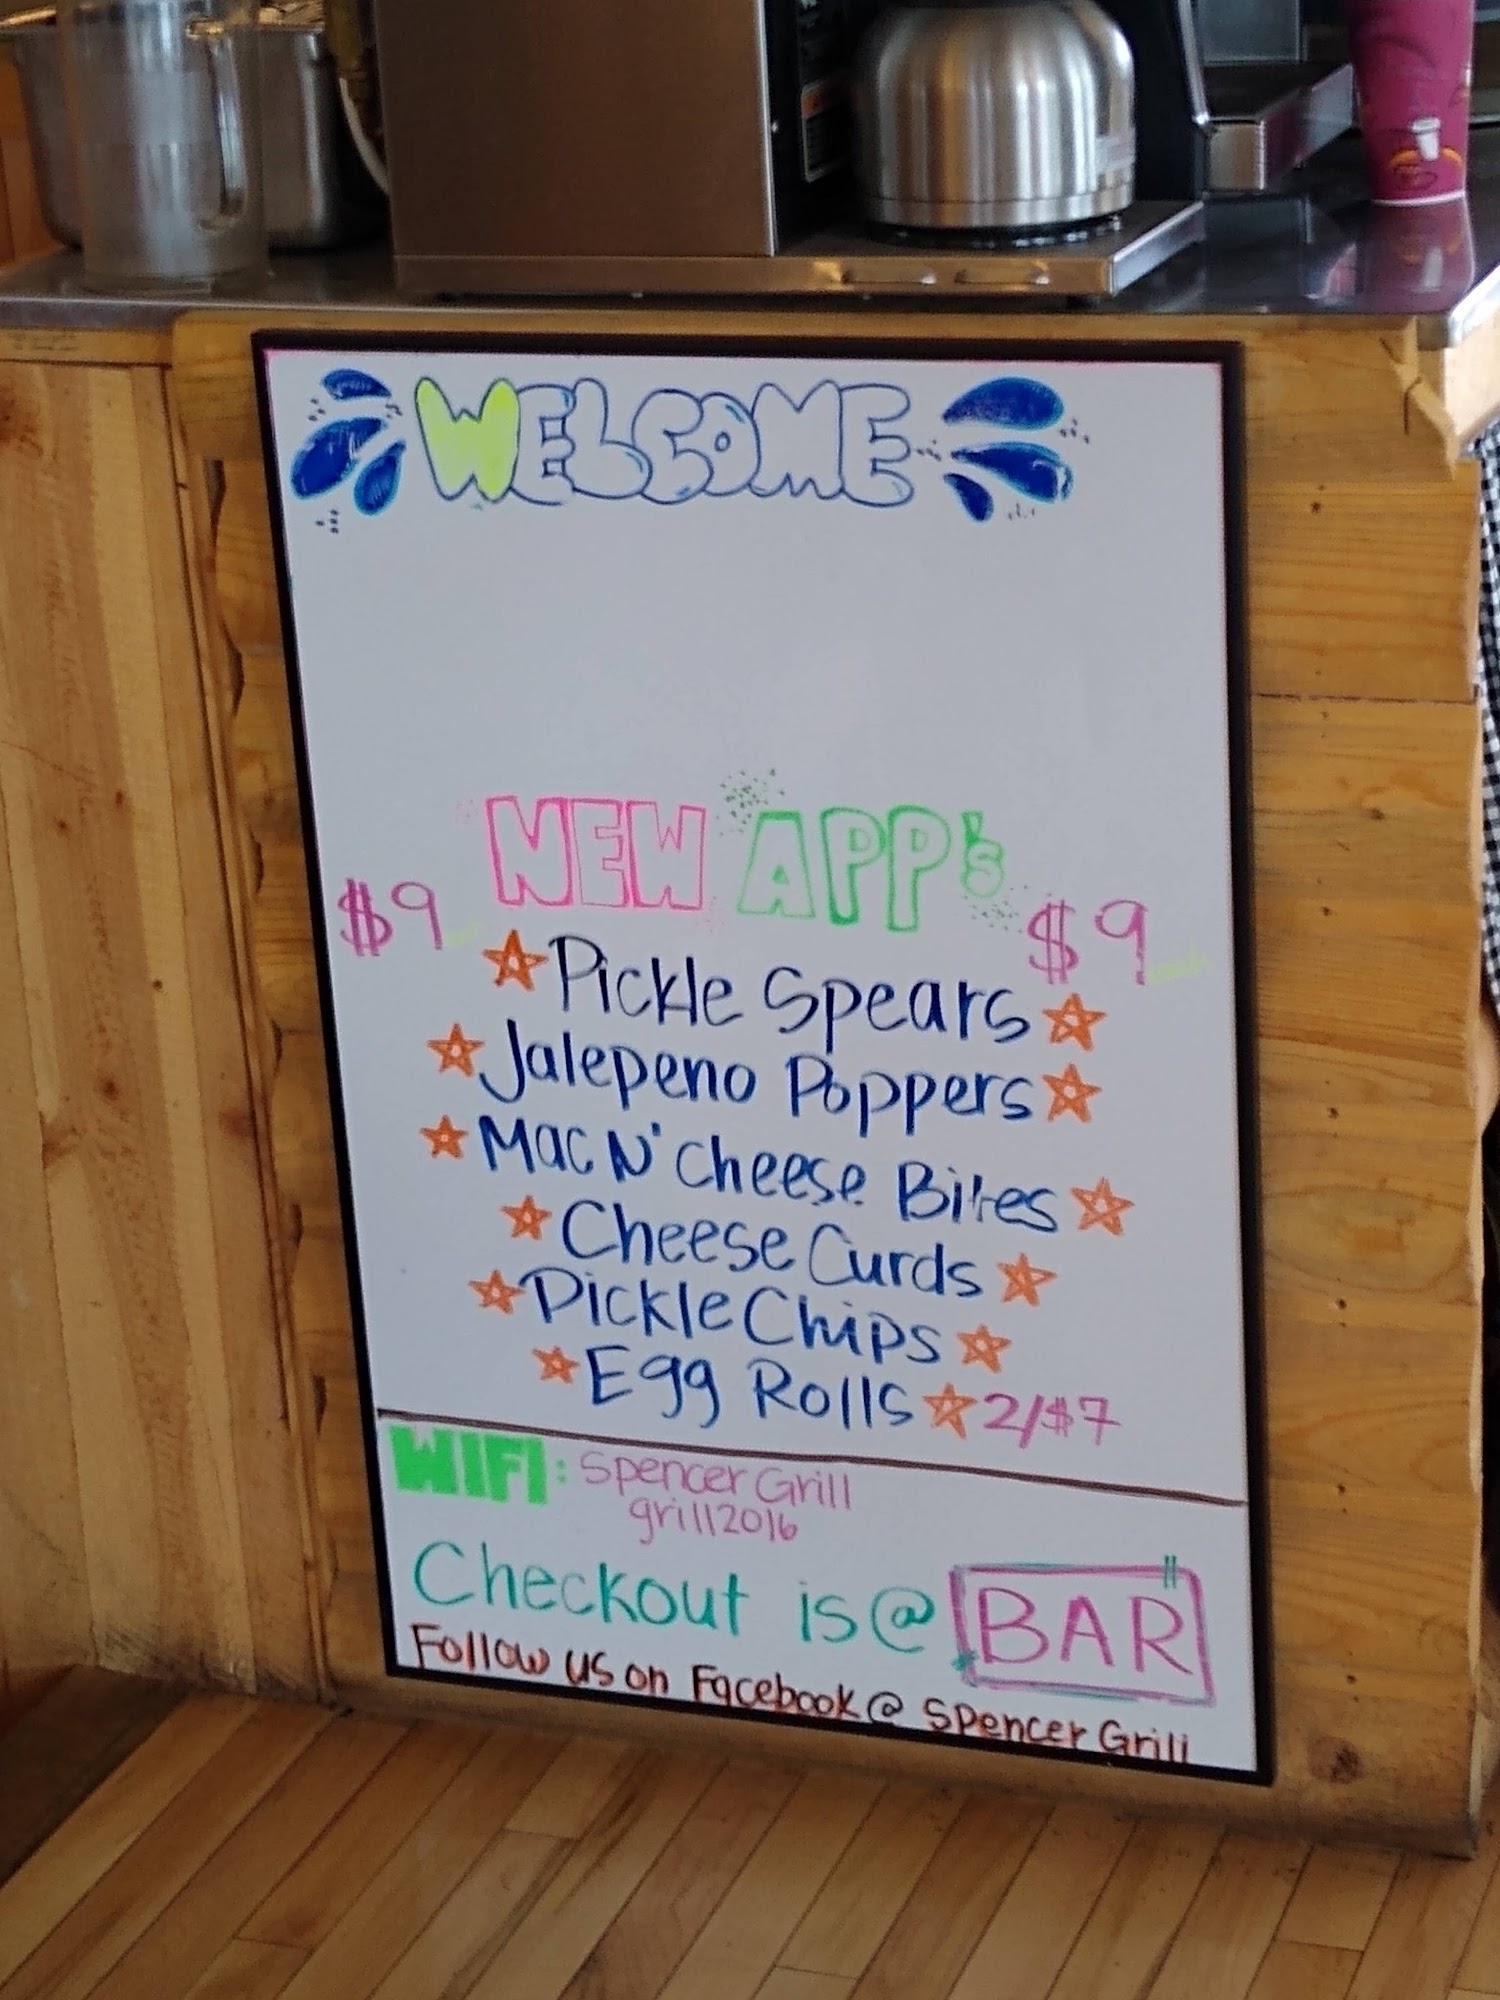 WELCOME
NEW APP's
$9 $9
Pickle Spears
Jalepeno Poppers
Mac N' Cheese Bites
Cheese Curds
Pickle Chips
Egg Rolls 2/$7
WIFI: Spencer Grill
grill2016
Checkout is @ BAR
Follow us on Facebook @ Spencer Grill